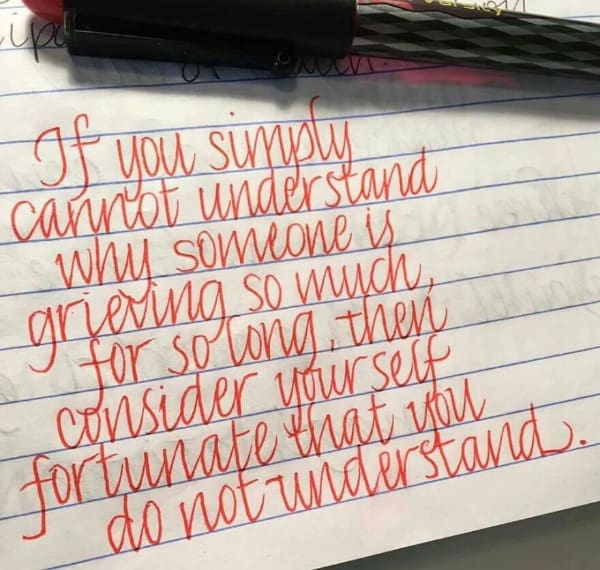 If you simply
cannot understand
why someone is
grieving so much,
for so long, then
consider yourself
fortunate that you
do not understand.